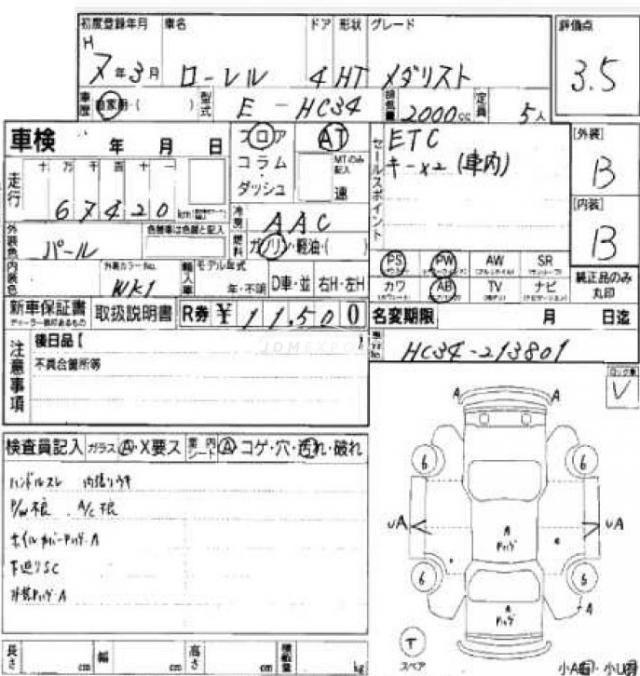 初度登録年月 車名 ドア 形状 グレード 評価点
H
7年3月 ローレル 4 HT メダリスト 3.5
車歴 自家用・( ) 型式 E-HC34 排気量 2000cc 定員 5人
車検 年 月 日
フロア AT
コラム MTのみ記入
ダッシュ 速
セールスポイント
ETC
キーx2 (車内)
[外装]
B
[内装]
B
走行 十 万 千 百 十 一
67420km
冷房 AAC
外装色 パール 色替車は色替と記入
燃料 ガソリン・軽油・( )
PS PW AW SR
カワ AB TV ナビ
純正品のみ丸印
内装色 外装カラーNo. WK1 輸入車 モデル年式 年・不明 D車・並 右H・左H
新車保証書 取扱説明書 R券 ¥11,500
名変期限 月 日迄
注意事項
後日品[ ]
不具合箇所等
HC34-213801
V
検査員記入 ガラス A・X要ス 内 シート A コゲ・穴・汚れ・破れ
ハンドルスレ 内張りウキ
P/W不良 A/C不良
ホイルカバーA
下廻りSC
A
A A
6 6
UA A UA
6 6
A
T
スペア
長さ cm 幅 cm 高さ cm 積載量 kg
小A 小U